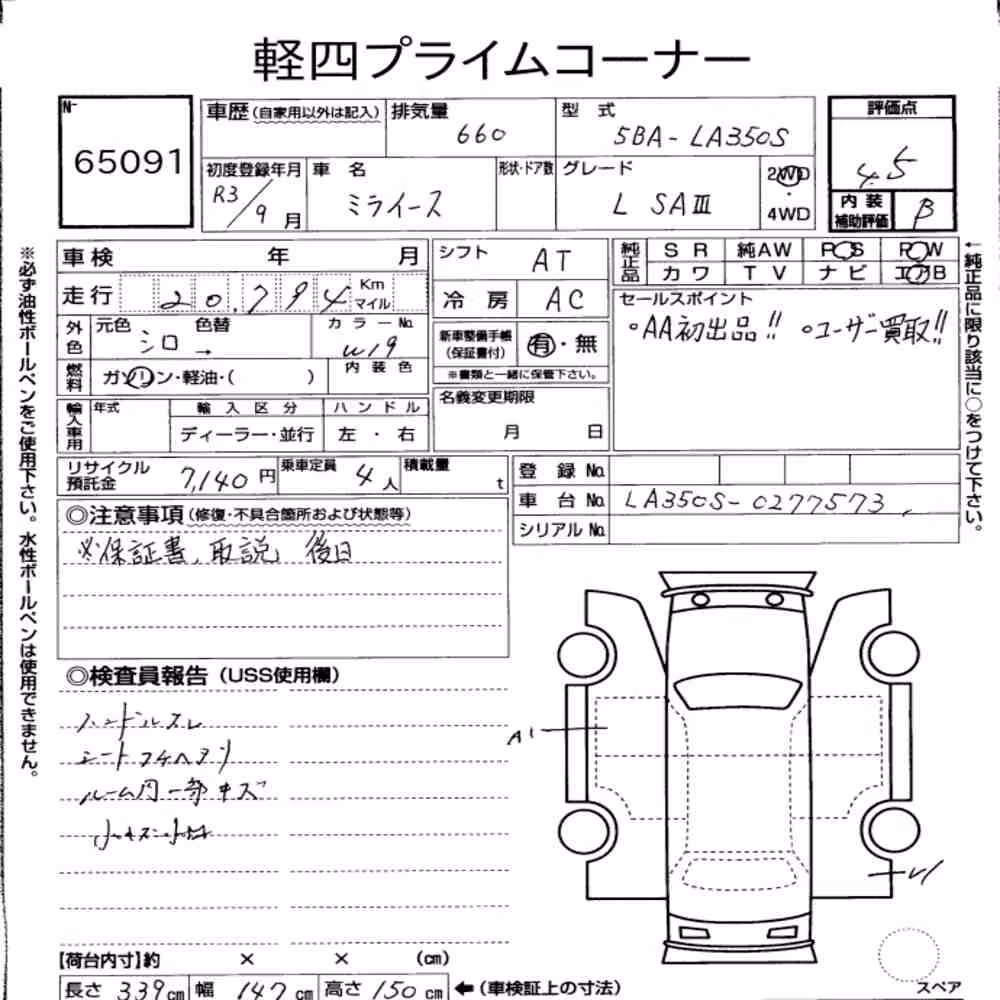 軽四プライムコーナー
№ 65091
車歴(自家用以外は記入) 排気量 660 型式 5BA-LA350S
初度登録年月 R3/9月 車名 ミライース 形状・ドア数 グレード L SAⅢ 2WD・4WD
評価点 4.5
内装補助評価 B
車検 年 月
走行 20,794 Km マイル
外色 元色 シロ 色替 → カラーNo. W19
燃料 ガソリン・軽油・( ) 内装色
輸入車用 年式 輸入区分 ハンドル
ディーラー・並行 左・右
シフト AT
冷房 AC
新車整備手帳(保証書付) 有・無
※書類と一緒に保管下さい。
名義変更期限
月 日
純正品 SR 純AW PS PW
カワ TV ナビ エアB
セールスポイント
○AA初出品!! ○ユーザー買取!!
リサイクル預託金 7,140円 乗車定員 4人 積載量 t
登録No.
車台No. LA350S-0277573
シリアルNo.
◎注意事項(修復・不具合箇所および状態等)
※保証書、取説 後日
◎検査員報告(USS使用欄)
ハンドルスレ
シート コゲヘタリ
ルーム内一部キズ
A1
【荷台内寸】約 × × (cm)
長さ 339cm 幅 147cm 高さ 150cm ←(車検証上の寸法)
スペア
※必ず油性ボールペンをご使用下さい。水性ボールペンは使用できません。
←純正品に限り該当に○をつけて下さい。